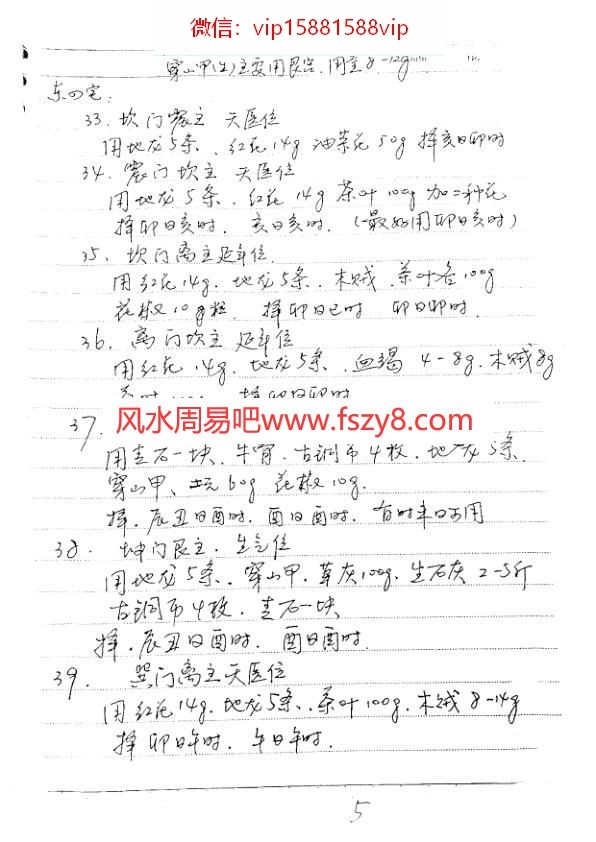 微信：vip15881588vip
穿山甲(土)主要用艮宫.用量8-12g
东四宅：
33. 坎门震主 天医位
用地龙5条、红花14g 油菜花50g 择亥日卯时
34. 震门坎主 天医位
用地龙5条. 红花14g 茶叶100g 加二种花
择卯日亥时. 亥日亥时. (最好用卯日亥时)
35. 坎门离主延年位.
用红花14g. 地龙5条. 木贼. 茶叶各100g
花椒10g粒. 择卯日巳时 卯日卯时.
36. 离门坎主 延年位
用红花14g. 地龙5条. 血竭 4-8g. 木贼8g
择卯日卯时
风水周易吧www.fszy8.com
37.
用圭石一块、牛胃、古铜币4枚、地龙5条.
穿山甲、60g 花椒10g.
择.辰丑日酉时. 酉日酉时. 有时未日可用
38. 坤门艮主. 生气位
用地龙5条. 穿山甲. 草灰100g. 生石灰2-5斤
古铜币4枚. 圭石一块
择. 辰丑日酉时. 酉日酉时.
39. 巽门离主天医位
用红花14g. 地龙5条. 茶叶100g. 木贼8-14g
择卯日午时. 午日午时.
5